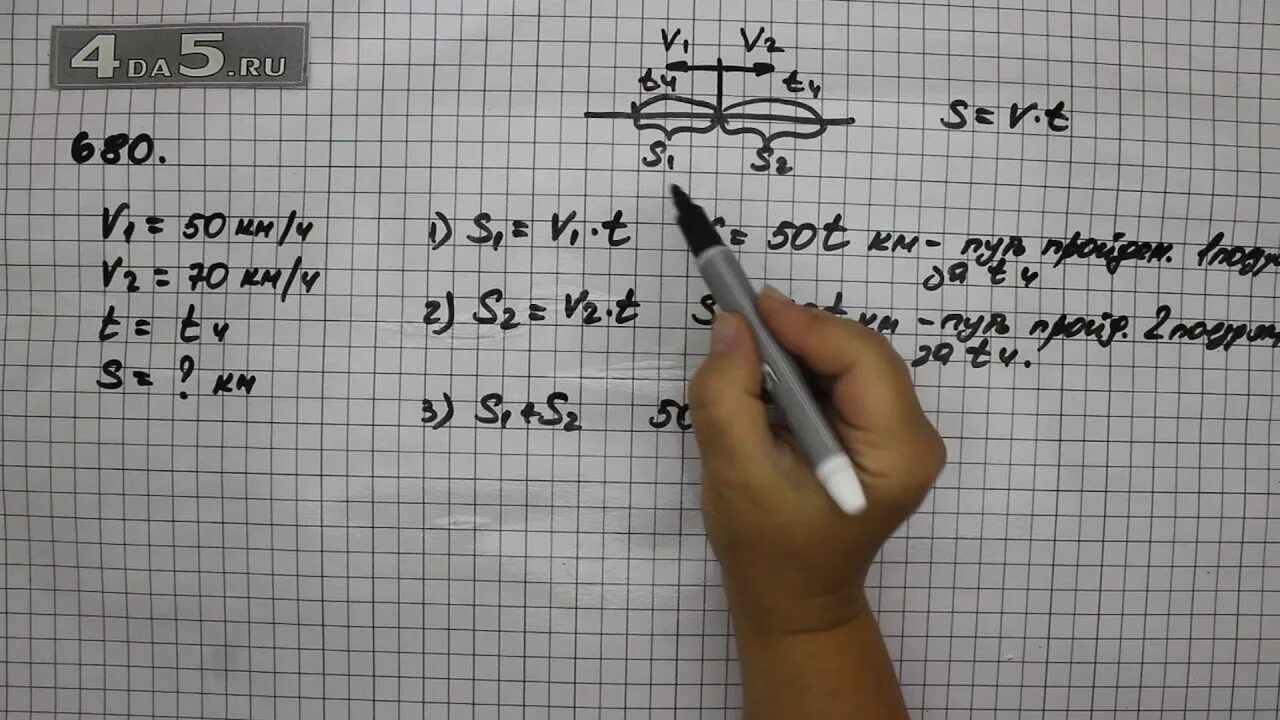 4DA5.RU
V₁ V₂
t ч t ч
S₁ S₂
S = V·t
680.
V₁ = 50 км/ч
V₂ = 70 км/ч
t = t ч
S = ? км
1) S₁ = V₁·t = 50t км - путь пройден. 1
за t ч
2) S₂ = V₂·t S t км - путь пройд. 2
за t ч.
3) S₁ + S₂ 50